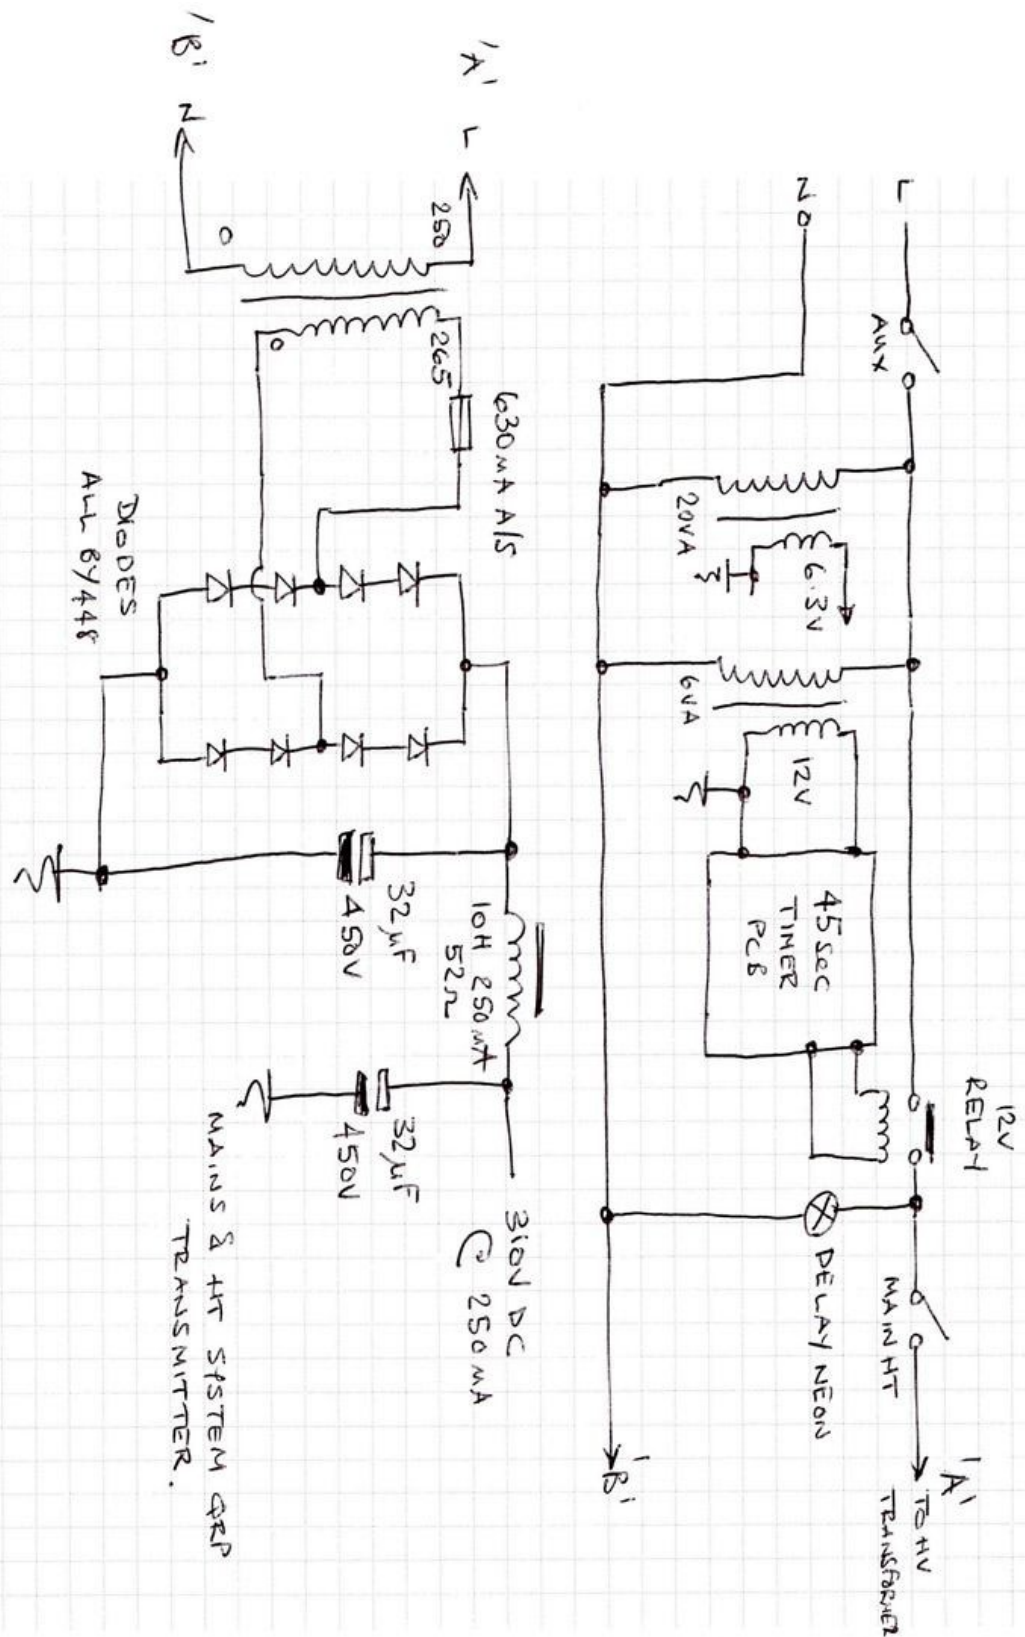 L
AUX
N
20VA
6.3V
6VA
12V
45 SEC
TIMER
PCB
12V
RELAY
DELAY NEON
MAIN HT
'A' TO HV
TRANSFORMER
'B'
'A' L
'B' N
250
0
265
0
630mA A/S
DIODES
ALL BY448
32µF
450V
10H 250mA
52Ω
32µF
450V
310V DC
@ 250mA
MAINS & HT SYSTEM QRP
TRANSMITTER.